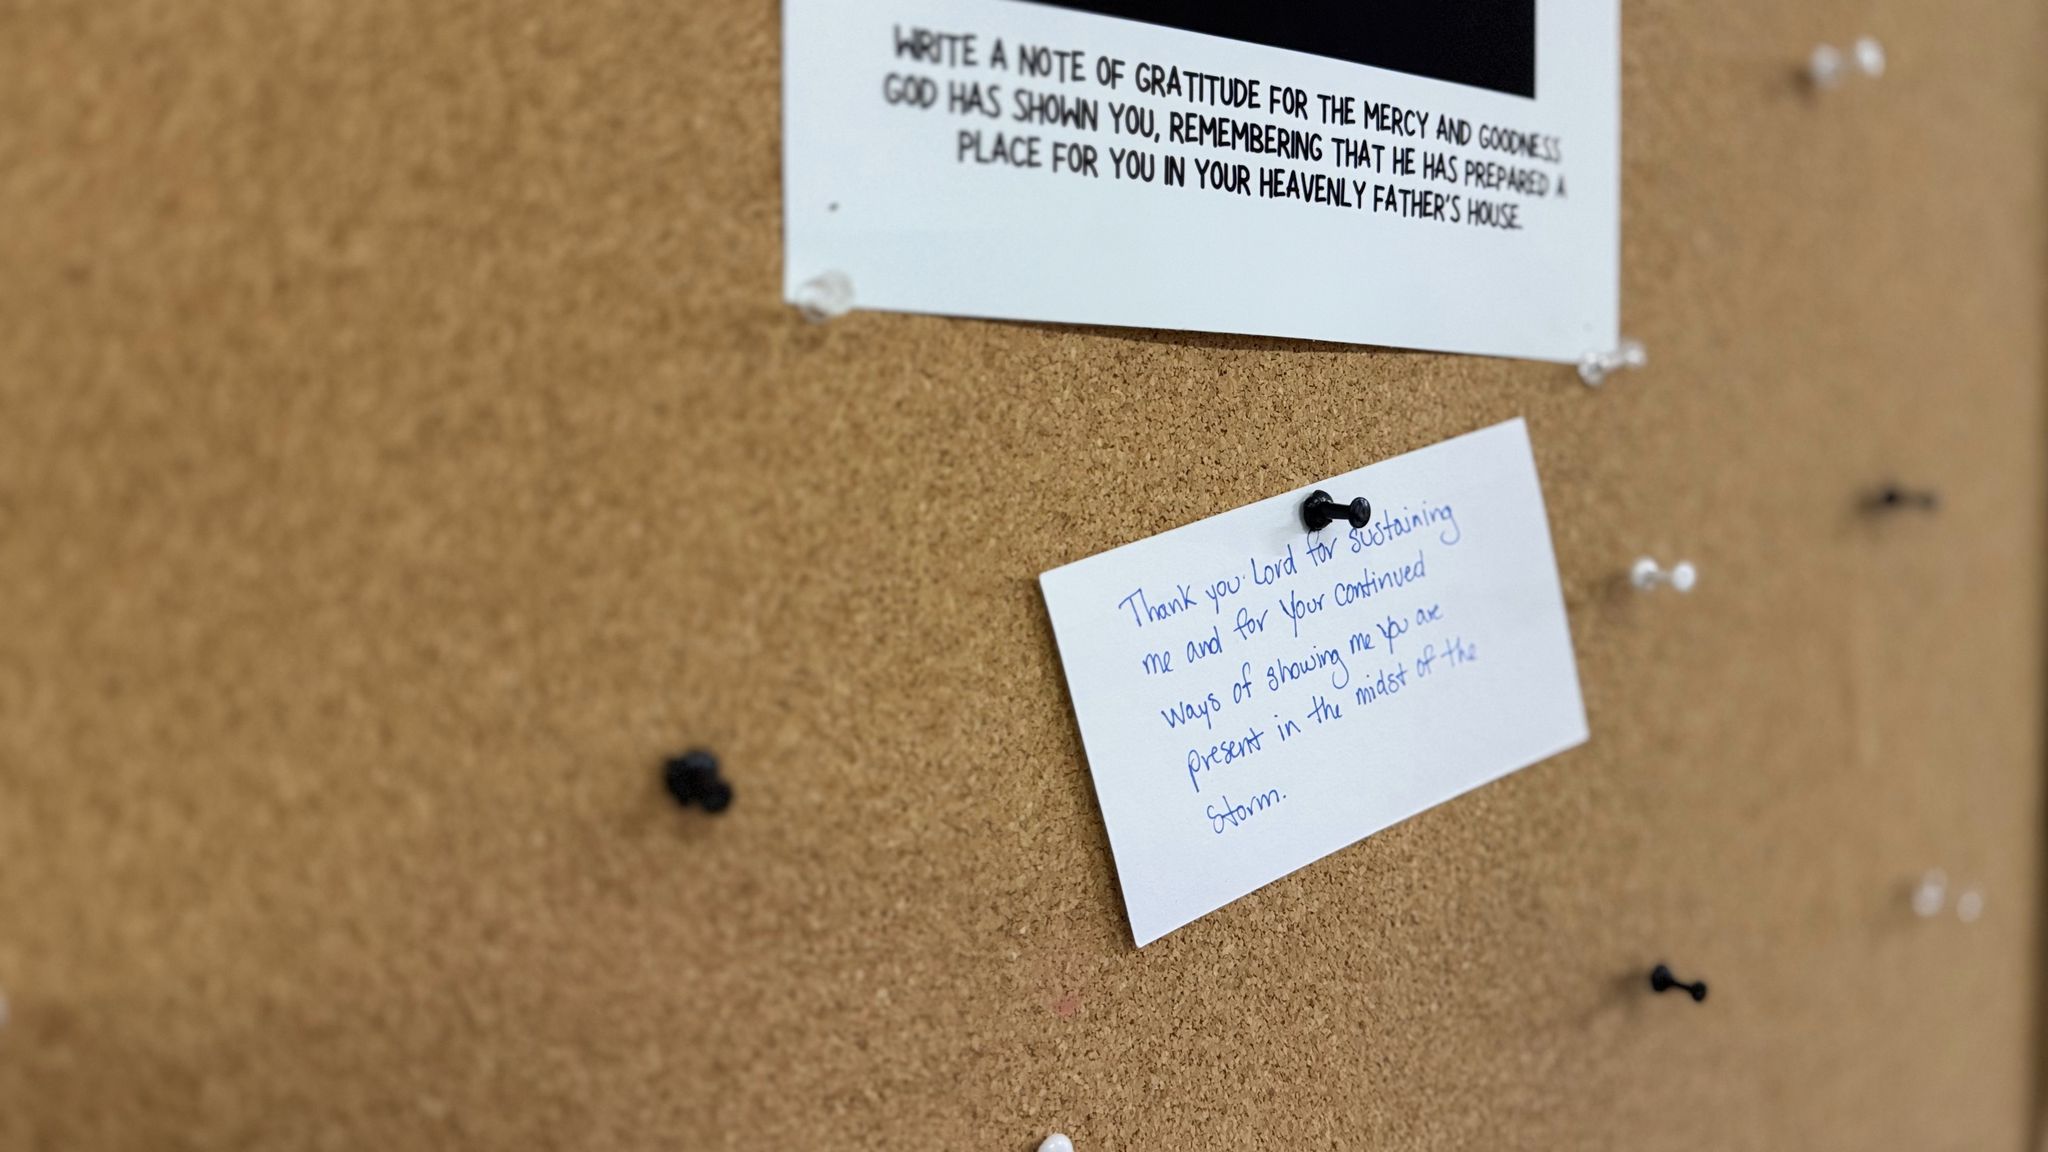 WRITE A NOTE OF GRATITUDE FOR THE MERCY AND GOODNESS
GOD HAS SHOWN YOU, REMEMBERING THAT HE HAS PREPARED A
PLACE FOR YOU IN YOUR HEAVENLY FATHER'S HOUSE.
Thank you Lord for sustaining
me and for Your continued
ways of showing me You are
present in the midst of the
storm.